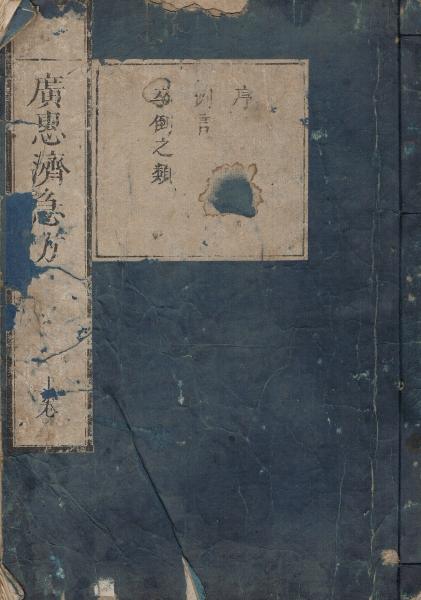 廣惠濟急方
上卷
序
例言
卒倒之類